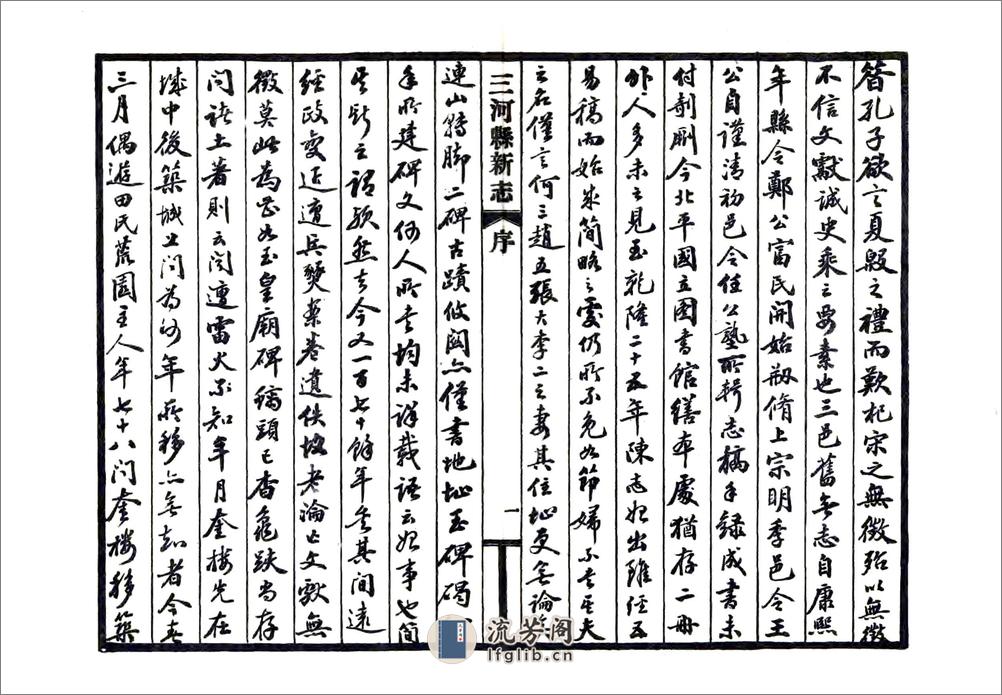 昔孔子欲言夏殷之禮而歎杞宋之無徵殆以無徵
不信文獻誠史乘之要素也三邑舊無志自康熙
年縣令鄭公富民開始剏脩上宗明季邑令王
公自謹清初邑令任公塾所輯志稿手錄成書未
付剞劂今北平國立圖書館繕本處猶存二冊
外人多未之見至乾隆二十五年陳志始出雖經五
易稿而始末簡略之處仍所不免如節婦不書其夫
之名僅言何三趙五張大李二之妻其住址更無論
連山轉脚二碑古蹟攸關亦僅書地址至碑碣
年所建碑文何人所書均未詳載語云始事也簡
其斯之謂歟然去今又一百七十餘年矣其間遠
經政變近遭兵燹案卷遺佚故老淪亡文獻無
徵莫此為甚如玉皇廟碑螭頭已杳龜趺尚存
問諸土著則云闕遭雷火不知年月奎樓先在
城中後築城上問為何年所移亦無知者今春
三月偶遊田氏蔬園主人年七十八問奎樓移築
三河縣新志
序
一
流芳阁
lfglib.cn